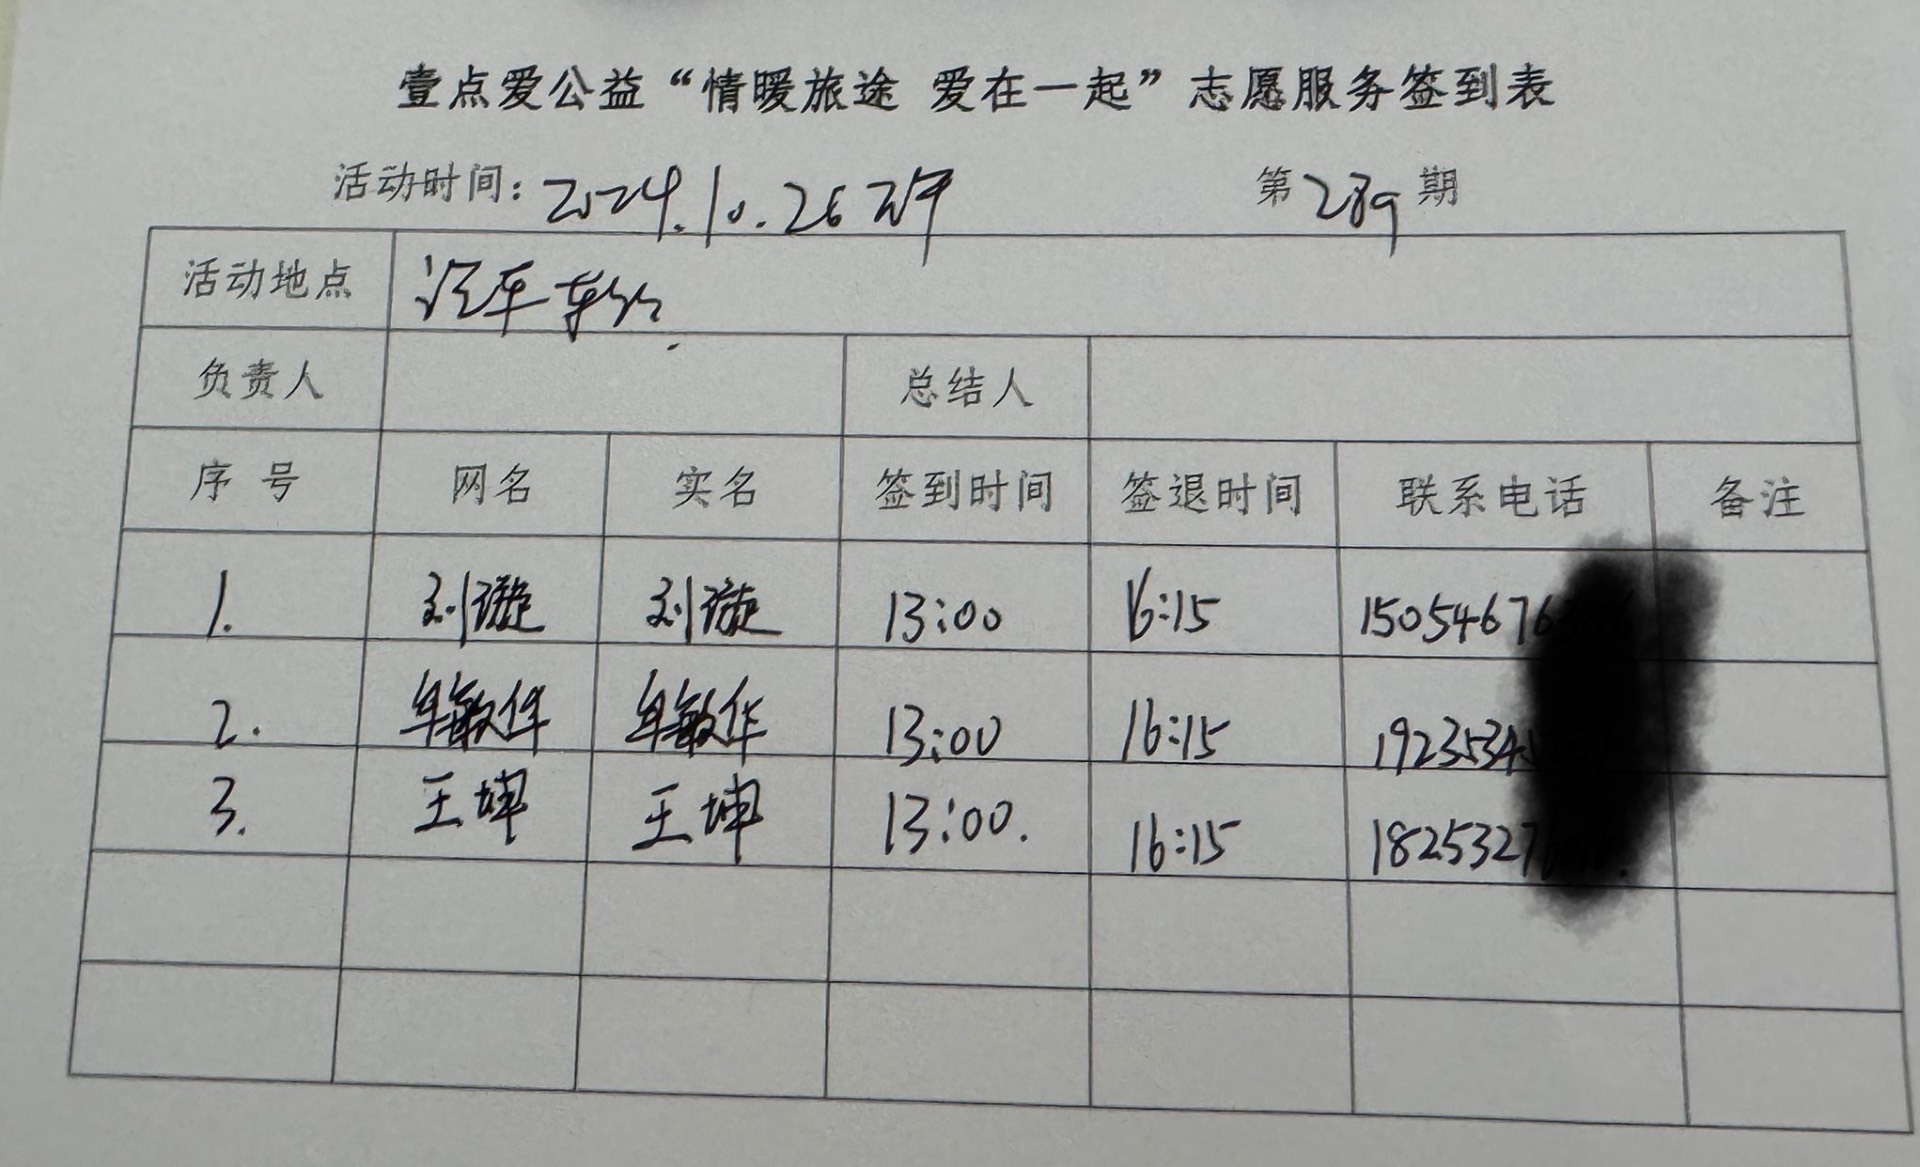 壹点爱公益“情暖旅途 爱在一起”志愿服务签到表
活动时间：2024.10.26 第289期
活动地点 汽车
负责人 总结人
序号 网名 实名 签到时间 签退时间 联系电话 备注
1. 刘璇 刘璇 13:00 16:15 150546767
2. 牟敏佳 牟敏佳 13:00 16:15 1923534
3. 王坤 王坤 13:00. 16:15 1825327